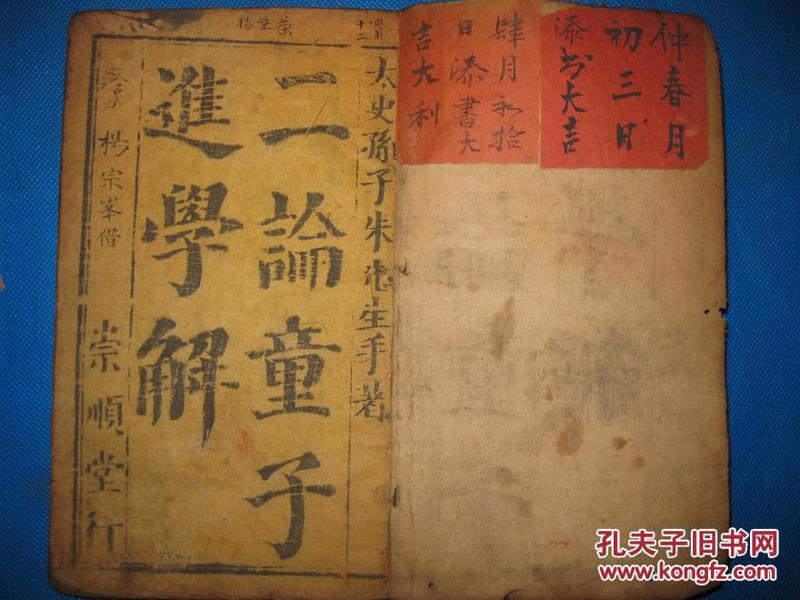 仲春月
初三日
添书大吉
肆月初拾
日添書大
吉大利
太史孫子朱先生手著
二論童子
進學解
崇順堂行
楊宗峯借
孔夫子旧书网
www.kongfz.com